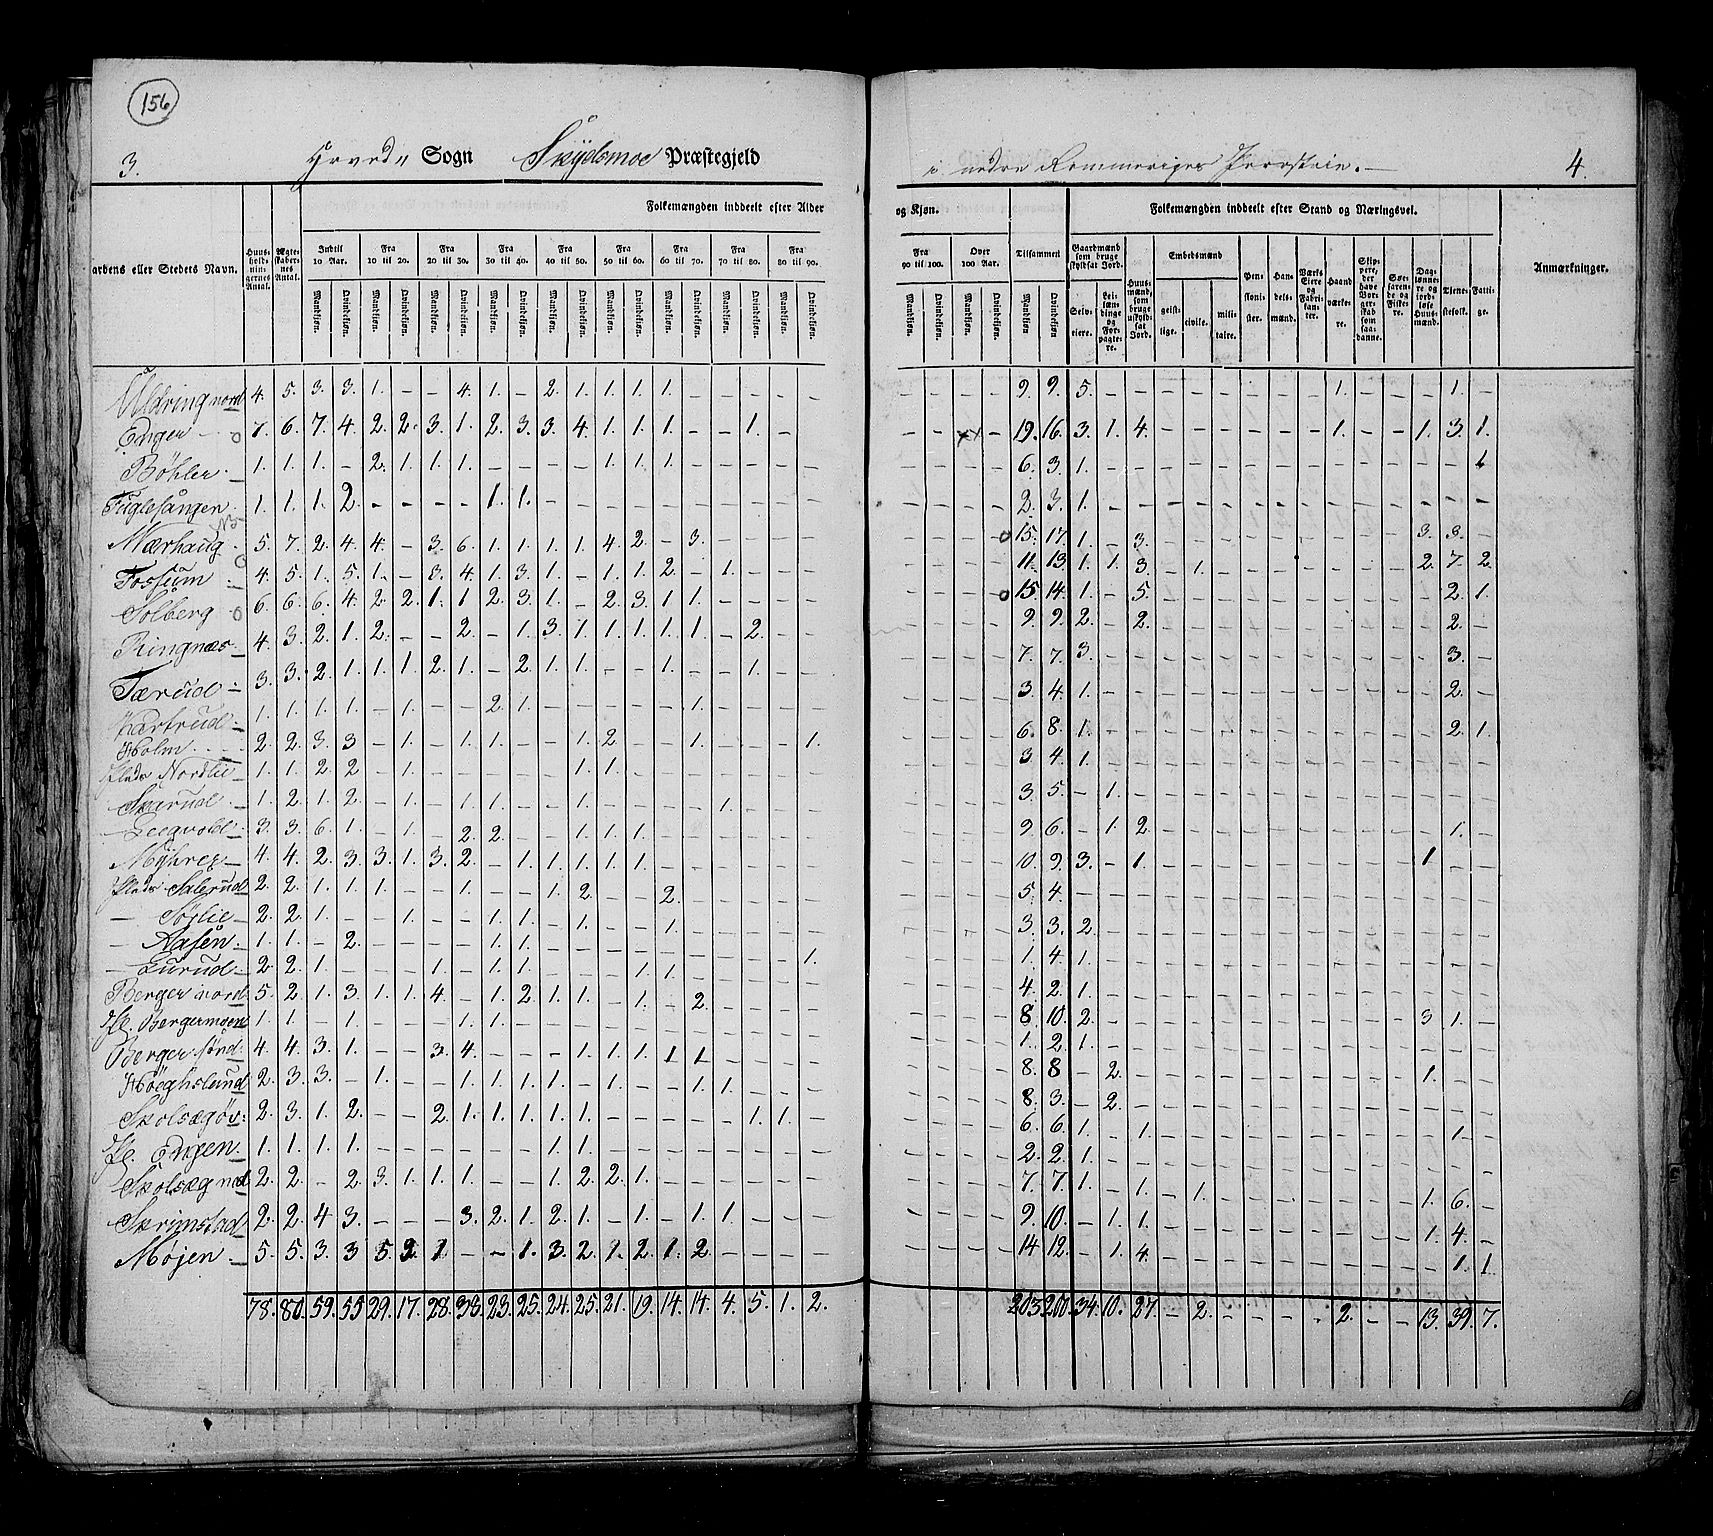 156
3. Hoved- Sogn Skydsmoe Præstegjeld i nedre Rommeriges Provstie. 4.
Folkemængden inddeelt efter Alder og Kjøn. Folkemængden inddeelt efter Stand og Næringsvei.
aardens eller Stedets Navn. Huus-holdningernes Antal. Ægteskabernes Antal. Indtil 10 Aar. Fra 10 til 20. Fra 20 til 30. Fra 30 til 40. Fra 40 til 50. Fra 50 til 60. Fra 60 til 70. Fra 70 til 80. Fra 80 til 90. Fra 90 til 100. Over 100 Aar. Tilsammen Gaardmænd som bruge skyldsat Jord. Huusmænd, som bruge uskyldsat Jord. Embedsmænd Pensionister. Handelsmænd. Værks Eiere og Fabrikanter. Haandværkere. Skippere, der have Borgerskab som saadanne. Søefarende og Fiskere. Daglønnere og jordløse Huusmænd. Tienestefolk. Fattige. Anmærkninger.
Mandkjøn. Qvindekjøn. Selveiere. Leilændinge og Forpagtere. geistlige. civile. militaire.
Uldring nord 4. 5. 3. 3. 1. – – 4. 1. – 2. 1. 1. 1. 1. – – – – – – – – – 9. 9. 5. – – – – – – – – 1. – – – 1. –
Enger 7. 6. 7. 4. 2. 2. 3. 1. 2. 3. 3. 4. 1. 1. 1. – – 1. – – – – – 19. 16. 3. 1. 4. – – – – – – 1. – – 1. 3. 1.
Bøhler 1. 1. 1. – 2. 1. 1. 1. – – – – 1. 1. 1. – – – – – – – – – 6. 3. 1. – – – – – – – – – – – – – 1
Fuglesangen 1. 1. 1. 2. – – – – 1. 1. – – – – – – – – – – – – – – 2. 3. 1. – – – – – – – – – – – – – –
Mærhaug 5. 7. 2. 4. 4. – 3. 6. 1. 1. 1. 1. 4. 2. – 3. – – – – – – – 15. 17. 1. – 3. – – – – – – – – – 3. 3. –
Fossum 4. 5. 1. 5. 1. – 3. 4. 1. 3. 1. – 1. 1. 2. – 1. – – – – – – – 11. 13. 1. 1. 3. – 1. – – – – – – – 2. 7. 2.
Solberg 6. 6. 6. 4. 2. 2. 1. 1. 2. 3. 1. – 2. 3. 1. 1. – – – – – – – 15. 14. 1. – 5. – – – – – – – – – – 2. 1.
Ringnæs 4. 3. 2. 1. 2. – – 2. – 1. 3. 1. 1. 1. 1. 1. – 2. – – – – – – 9. 9. 2. – 2. – – – – – – – – – – 2. –
Tærud 3. 3. 2. 1. 1. 1. 2. 1. – 2. 1. 1. – – 1. – – 1. – – – – – – 7. 7. 3. – – – – – – – – – – – – 3. –
1. 1. 1. 1. – 1. – – 2. 1. – – – – – 1. – – – – – – – – 3. 4. 1. – – – – – – – – – – – – 2. –
Holm 2. 2. 3. 3 – 1. – 1. 1. – – 1. 2. – – 1. – – – 1. – – – – 6. 8. 1. – – – – – – – – – – – – 2. 1.
Plads Nordlie 1. 1. 2. 2 – 1. – – – – – 1. 1. – – – – – – – – – – – 3. 4. 1. – – – – – – – – – – – – – –
Skerud 1. 2. 1. 2. – 1. – 1. 1. – – 1. – – – – 1. – – – – – – – 3. 5. – 1. – – – – – – – – – – – – –
Leegvold 3. 3. 6. 1. – 1. – 2. 2. – – 1. 1. 1. – – – – – – – – – – 9. 6. – 1. 2. – – – – – – – – – – 1. –
Myhrer 4. 4. 2. 3. 3. 1. 3. 2. – 1. 1. 1. 1. 1. – – – – – – – – – – 10. 9. 3. – 1. – – – – – – – – – 1 – –
Plads Salerud 2. 2. 1. 1. 1. – – 1. – – 1. 2. – – 2. – – – – – – – – – 5. 4. – – – – – – – – – – – – – – –
– Sørlie 2. 2. 1. – – 1. – – 1. 1. – 1. – – 1. – – – – – – – – – 3. 3. 2. – – – – – – – – – – – – – –
– Aasen 1. 1. – 2. – – – – 1. 1. – – – – – – – – – 1. – – – – 1. 4. 1. – – – – – – – – – – – – – –
– Lurud 2. 2. 1. – – – 1. – 1. 1. – – – 1. 1. – – – – – – – – – 4. 2. 1. – – – – – – – – – – – – – –
Berger nord 5. 2. 1. 3. 1. 1. 4. – 1. 2. 1. 1. – 1. – 2. – – – – – – – – 8. 10. 2. – – – – – – – – – – – 3 1. –
Pl. Bergermoen 1. 1. – 1. – – – 1. 1. – – – – – – – – – – – – – – – 1. 2. 1. – – – – – – – – – – – – – –
Berger sønd. 4. 4. 3. 1. – – 3. 4. – – – 1. 1. 1. 1 1 – – – – – – – – 8. 8 – 2. – – – – – – – – – – 1. – –
Høeghslund 2. 3. 3. – 1. – – 1. 1. 1. 1. – 1. – – 1. 1. – – – – – – – 8. 3. – 2. – – – – – – – – – – – – –
Skolsægøv: 2. 3. 1. 2. – – 2. 1. 1. 1. 1. 1. – – – – – 1. 1. – – – – – 6. 6. 1. – 1. – – – – – – – – – – 1. –
Pl. Engen 1. 1. 1. 1. – – – – – – 1. 1. – – – – – – – – – – – – 2. 2. 1. – – – – – – – – – – – – – –
Skolsæg ned 2. 2. – 2. 3. 1. 1. 1. – – 1. 2. 2. 1. – – – – – – – – – – 7. 7. 1. – 1. – 1. – – – – – – – 1. 6. –
Skrimstad 2. 2. 4 3. – – – 3. 2. 1. 2. 1. – 1. – 1. 1. – – – – – – – 9. 10. – 1. 1. – – – – – – – – – 1. 4. –
Møjen 5. 5. 3. 3 5. 2. 1. – – 1. 3. 2. 1. 2. 1. 2. – – – – – – – – 14 12. – 1. 4. – – – – – – – – – – 1. 1.
78. 80. 59. 55 29. 17. 28. 38. 23. 25. 24. 25. 21. 19. 14. 14. 4. 5. 1. 2. 203. 200. 34. 10. 27. – 2. – – – – 2. – – 13. 39. 7.